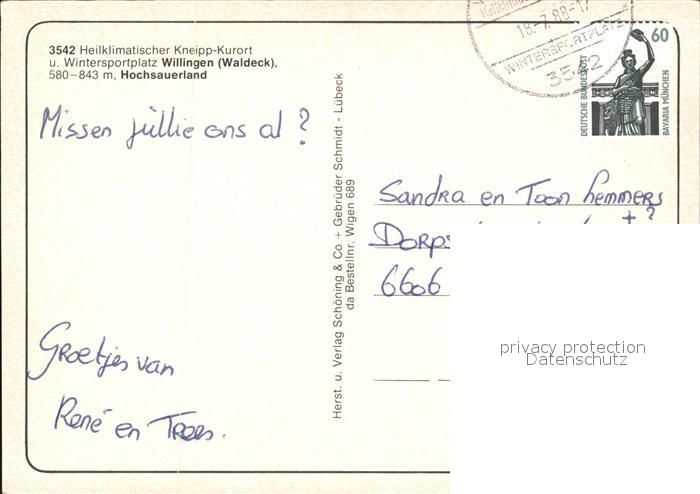 3542 Heilklimatischer Kneipp-Kurort
u. Wintersportplatz Willingen (Waldeck),
580–843 m, Hochsauerland
Missen jullie ons al ?
Groetjes van
René en Trees.
Herst. u. Verlag Schöning & Co + Gebrüder Schmidt - Lübeck
da Bestellnr. Wigen 689
18.-7.88-17
WINTERSPORTPLATZ
3542
60
DEUTSCHE BUNDESPOST
BAVARIA MÜNCHEN
Sandra en Toon Lemmers
+ ?
6606
privacy protection
Datenschutz